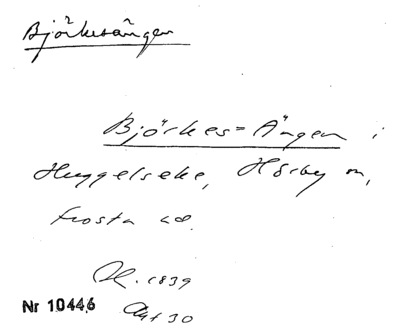 Björkesängen
Björkes=Ängen i
Huggelseke, Hörby sn,
Frosta hd.
Akt 30
1839
Nr 10446